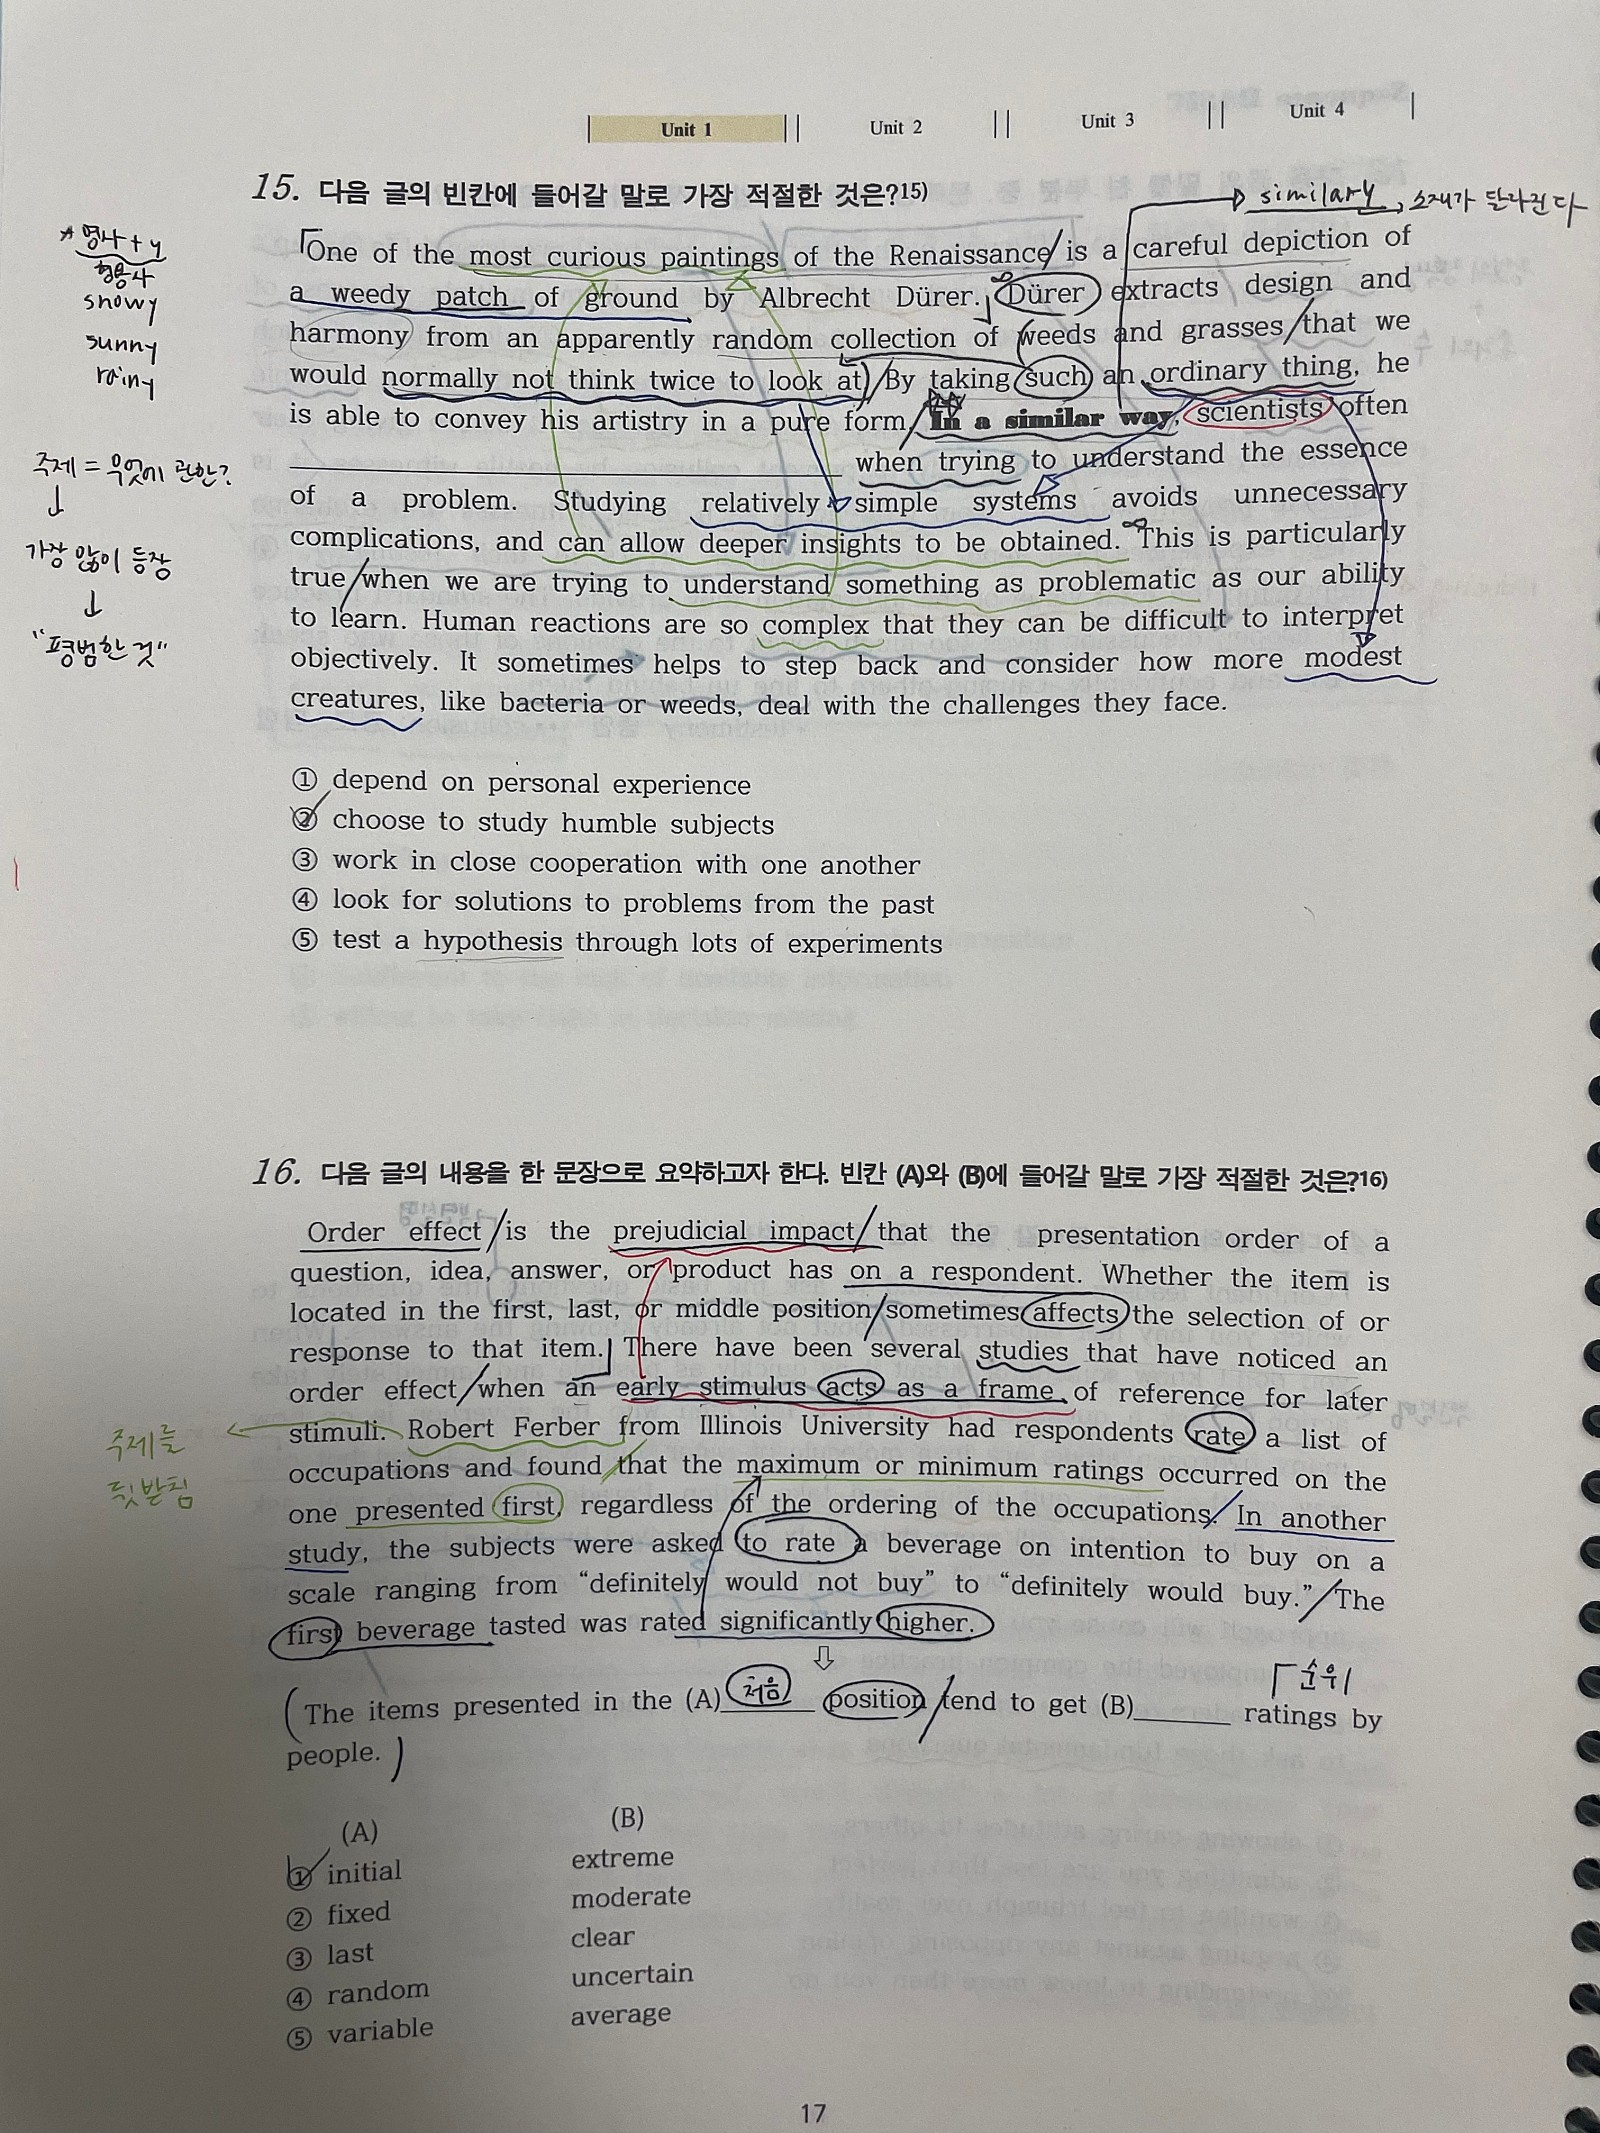 Unit 1 || Unit 2 || Unit 3 || Unit 4 |
15. 다음 글의 빈칸에 들어갈 말로 가장 적절한 것은?15)
similary, 소재가 달라진다
* 명사 + y
형용사
snowy
sunny
rainy
One of the most curious paintings of the Renaissance is a careful depiction of
a weedy patch of ground by Albrecht Dürer. Dürer extracts design and
harmony from an apparently random collection of weeds and grasses that we
would normally not think twice to look at. By taking such an ordinary thing, he
is able to convey his artistry in a pure form. In a similar way, scientists often
when trying to understand the essence
of a problem. Studying relatively simple systems avoids unnecessary
complications, and can allow deeper insights to be obtained. This is particularly
true when we are trying to understand something as problematic as our ability
to learn. Human reactions are so complex that they can be difficult to interpret
objectively. It sometimes helps to step back and consider how more modest
creatures, like bacteria or weeds, deal with the challenges they face.
주제 = 무엇에 관한?
↓
가장 많이 등장
↓
"평범한 것"
① depend on personal experience
② choose to study humble subjects
③ work in close cooperation with one another
④ look for solutions to problems from the past
⑤ test a hypothesis through lots of experiments
16. 다음 글의 내용을 한 문장으로 요약하고자 한다. 빈칸 (A)와 (B)에 들어갈 말로 가장 적절한 것은?16)
Order effect is the prejudicial impact that the presentation order of a
question, idea, answer, or product has on a respondent. Whether the item is
located in the first, last, or middle position sometimes affects the selection of or
response to that item. There have been several studies that have noticed an
order effect when an early stimulus acts as a frame of reference for later
stimuli. Robert Ferber from Illinois University had respondents rate a list of
occupations and found that the maximum or minimum ratings occurred on the
one presented first, regardless of the ordering of the occupations. In another
study, the subjects were asked to rate a beverage on intention to buy on a
scale ranging from “definitely would not buy” to “definitely would buy.” The
first beverage tasted was rated significantly higher.
주제를
뒷받침
⇩
순위
The items presented in the (A) 처음 position tend to get (B)______ ratings by
people.
(A) (B)
① initial extreme
② fixed moderate
③ last clear
④ random uncertain
⑤ variable average
17